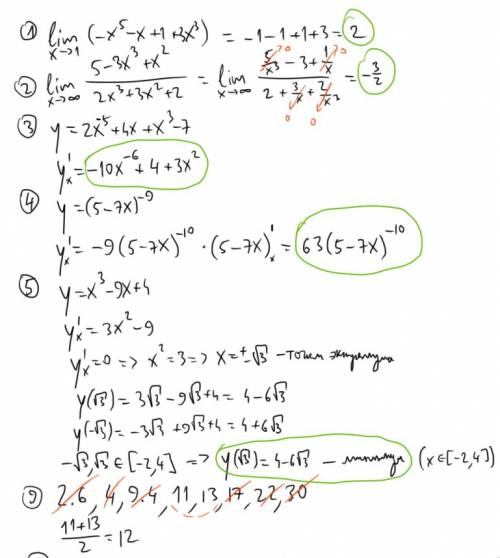 ① lim x→1 (-x⁵-x+1+3x³) = -1-1+1+3=2
② lim x→∞ (5-3x³+x²)/(2x³+3x²+2) = lim x→∞ (5/x³ -3+ 1/x)/(2+ 3/x + 2/x³) = -3/2
0 0
0 0
③ y=2x⁻⁵+4x+x³-7
y'ₓ=-10x⁻⁶+4+3x²
④ y=(5-7x)⁻⁹
y'ₓ=-9(5-7x)⁻¹⁰·(5-7x)'ₓ=63(5-7x)⁻¹⁰
⑤ y=x³-9x+4
y'ₓ=3x²-9
y'ₓ=0=>x²=3=>x=±√3 -точки экстремума
y(√3)=3√3-9√3+4=4-6√3
y(-√3)=-3√3+9√3+4=4+6√3
-√3,√3∈[-2,4] => y(√3)=4-6√3 - минимум (x∈[-2,4])
⑨ 2.6, 4, 9.4, 11, 13, 17, 22, 30
(11+13)/2=12